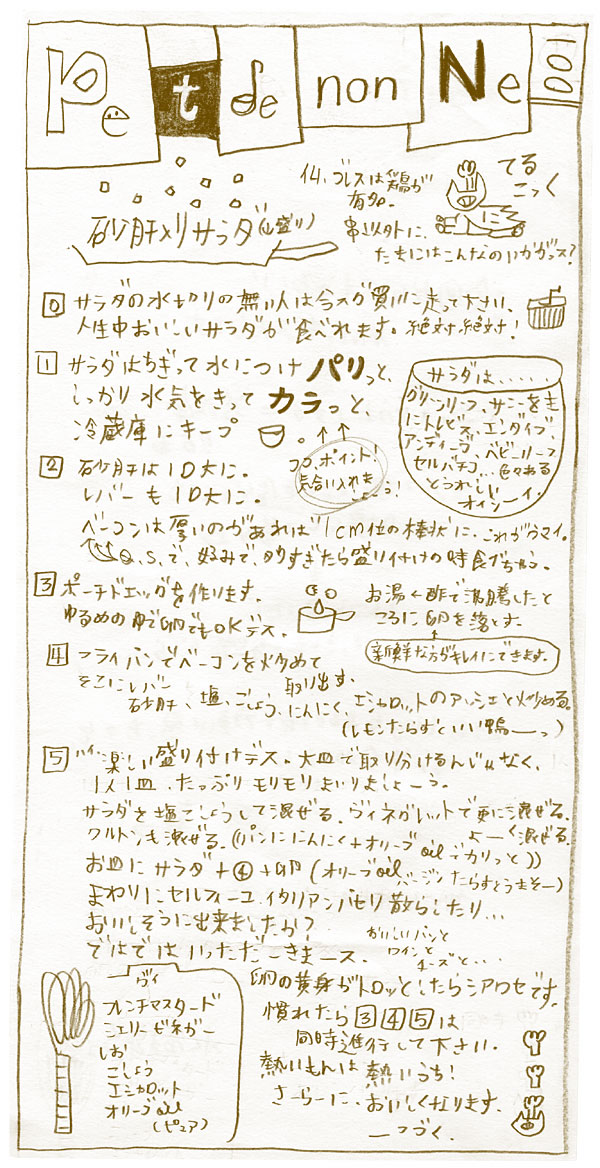 Pet de nonNe
001
てる
こっく
仏、ブレスは鶏が
有名。
串以外に、
たまにはこんなのいかがっス?
砂肝入りサラダ(山盛り)
0 サラダの水切りの無い人は今スグ買いに走って下さい、
人生中おいしいサラダが食べれます。絶対絶対!
1 サラダはちぎって水につけパリっと、
しっかり水気をきってカラっと、
冷蔵庫にキープ
ココ、ポイント!
気合い入れま
しょーう!
サラダは、、、、、
グリーンリーフ、サニーを主
にトレビス、エンダイブ、
アンディーブ、ベビーリーフ
セルバチコ...色々ある
とうれしい
オイシーイ.
2 砂肝は1口大に。
レバーも1口大に。
ベーコンは厚いのがあれば1cm位の棒状に、これがウマイ。
Q.S.で、好みで、多すぎたら盛り付けの時食べちゃう。
3 ポーチドエッグを作ります。
ゆるめのゆで卵でもOKデス。
お湯+酢で沸騰したと
ころに卵を落とす.
新鮮な方がキレイにできます.
4 フライパンでベーコンを炒めて
取り出す.
そこにレバー
砂肝、塩、こしょう、にんにく、エシャロットのアッシェと炒める。
(レモンたらすといい鴨ーっ)
5 ハイ、楽しい盛り付けデス。大皿で取り分けるんじゃなく、
1人1皿、たっぷりモリモリまいりましょーう。
サラダを塩こしょうして混ぜる.ヴィネグレットで更に混ぜる.
よーく混ぜる.
クルトンも混ぜる。((パンににんにく+オリーブoilでカリっと))
お皿にサラダ+④+卵(オリーブoilバージンたらすとうまそー)
まわりにセルフィーユ、イタリアンパセリ散らしたり...
おいしそうに出来ましたか?
ではではいっただーきまース.
おいしいパンと
ワインと
チーズと...
ヴィ
フレンチマスタード
シェリービネガー
しお
こしょう
エシャロット
オリーブoil
(ピュア)
卵の黄身がトロッとしたらシアワセです.
慣れたら345は
同時進行して下さい.
熱いもんは熱いうち!
さーらーに、おいしくなります.
ーつづく.